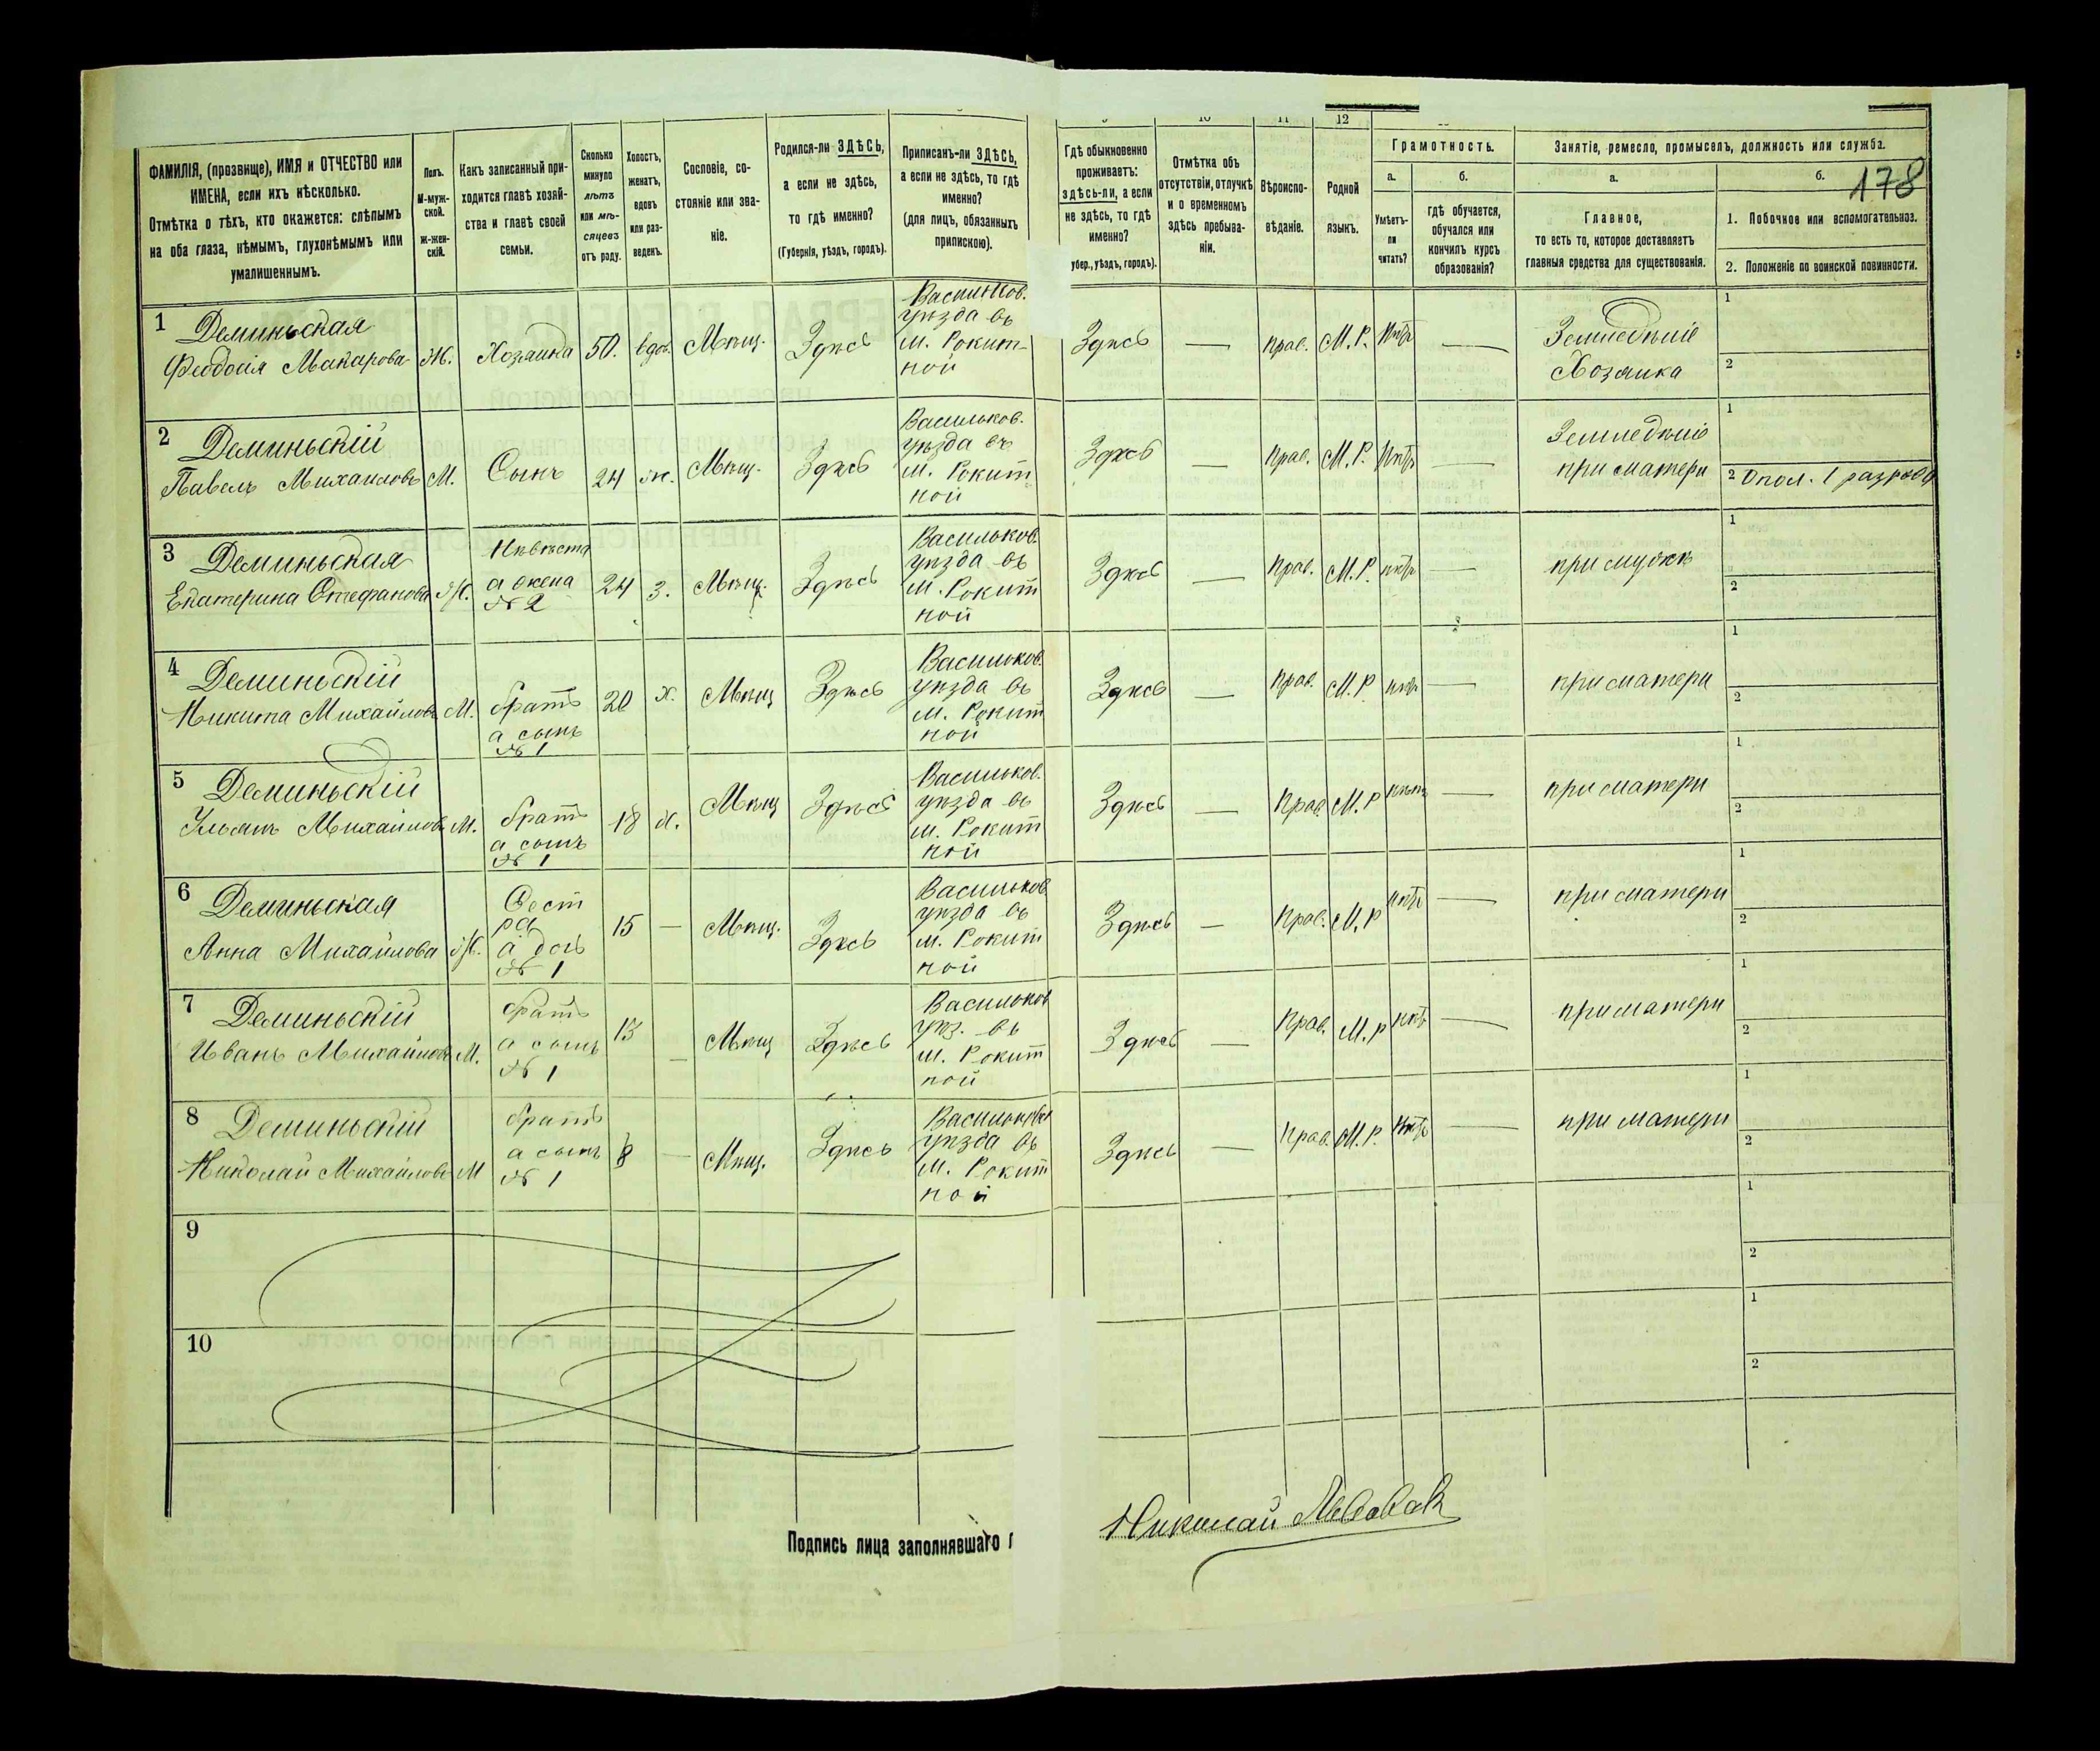 178
9 10 11 12
ФАМИЛІЯ, (прозвище), ИМЯ и ОТЧЕСТВО или
ИМЕНА, если ихъ нѣсколько.
Отмѣтка о тѣхъ, кто окажется: слѣпымъ
на оба глаза, нѣмымъ, глухонѣмымъ или
умалишеннымъ.
Полъ.
М-муж-
ской.
Ж-жен-
скій.
Какъ записанный при-
ходится главѣ хозяй-
ства и главѣ своей
семьи.
Сколько
минуло
лѣтъ
или мѣ-
сяцевъ
отъ роду.
Холостъ,
женатъ,
вдовъ
или раз-
веденъ.
Сословіе, со-
стояніе или зва-
ніе.
Родился-ли ЗДѢСЬ,
а если не здѣсь,
то гдѣ именно?
(Губернія, уѣздъ, городъ).
Приписанъ-ли ЗДѢСЬ,
а если не здѣсь, то гдѣ
именно?
(для лицъ, обязанныхъ
припискою).
Гдѣ обыкновенно
проживаетъ:
здѣсь-ли, а если
не здѣсь, то гдѣ
именно?
убер., уѣздъ, городъ).
Отмѣтка объ
отсутствіи, отлучкѣ
и о временномъ
здѣсь пребыва-
ніи.
Вѣроиспо-
вѣданіе.
Родной
языкъ.
Грамотность.
а.
Умѣетъ-
ли
читать?
б.
гдѣ обучается,
обучался или
кончилъ курсъ
образованія?
Занятіе, ремесло, промыселъ, должность или служба.
а.
Главное,
то есть то, которое доставляетъ
главныя средства для существованія.
б.
1. Побочное или вспомогательное.
2. Положеніе по воинской повинности.
1 Деминьская
Феодосія Макарова Ж. Хозяйка 50. вдов. Мѣщ. Здѣсь
Васильков.
уѣзда въ
м. Рокит-
ной
Здѣсь — прав. М. Р. Нѣтъ —
Земледѣліе
Хозяйка
1
2
2 Деминьскій
Павелъ Михайловъ М. Сынъ 24 ж. Мѣщ. Здѣсь
Васильков.
уѣзда въ
м. Рокит
ной
Здѣсь — Прав. М. Р. Нѣтъ —
Земледѣліе
при матери
1
2 Опол. 1 разряда
3 Деминьская
Екатерина Стефанова Ж.
Невѣста
а жена
№ 2
24 З. Мѣщ. Здѣсь
Васильков.
уѣзда въ
м. Рокит
ной
Здѣсь — Прав. М. Р. нѣтъ — при мужѣ
1
2
4 Деминьскій
Никита Михайловъ М.
братъ
а сынъ
№ 1
20 х. Мѣщ Здѣсь
Васильков.
уѣзда въ
м. Рокит
ной
Здѣсь — Прав. М. Р нѣтъ — при матери
1
2
5 Деминьскій
Ульянъ Михайловъ М.
братъ
а сынъ
№ 1
18 х. Мѣщ Здѣсь
Васильков.
уѣзда въ
м. Рокит
ной
Здѣсь — Прав. М. Р нѣтъ — при матери
1
2
6 Деминьская
Анна Михайлова Ж.
Сест
ра
а дочь
№ 1
15 — Мѣщ. Здѣсь
Васильков
уѣзда въ
м. Рокит
ной
Здѣсь — Прав. М. Р нѣтъ — при матери
1
2
7 Деминьскій
Иванъ Михайловъ М.
братъ
а сынъ
№ 1
13 — Мѣщ Здѣсь
Васильков
уѣз. въ
м. Рокит
ной
Здѣсь — Прав. М. Р нѣтъ — при матери
1
2
8 Деминьскій
Николай Михайловъ М
братъ
а сынъ
№ 1
8 — Мѣщ. Здѣсь
Васильков
уѣзда въ
м. Рокит
ной
Здѣсь — Прав. М. Р. Нѣтъ — при матери
1
2
9
1
2
10
1
2
Подпись лица заполнявшаго п
Николай